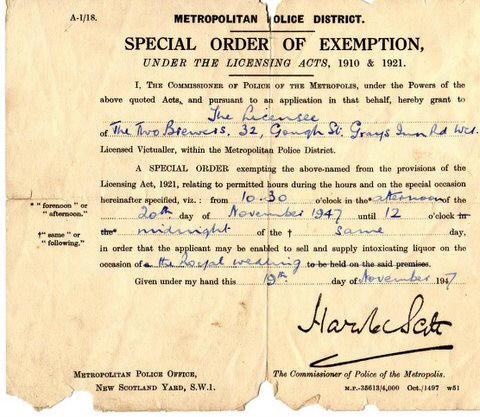 A-I/18.
METROPOLITAN POLICE DISTRICT.
SPECIAL ORDER OF EXEMPTION,
UNDER THE LICENSING ACTS, 1910 & 1921.
I, THE COMMISSIONER OF POLICE OF THE METROPOLIS, under the Powers of the
above quoted Acts, and pursuant to an application in that behalf, hereby grant to
The Licensee
of The Two Brewers, 32, Gough St. Grays Inn Rd WC1.
Licensed Victualler, within the Metropolitan Police District.
A SPECIAL ORDER exempting the above-named from the provisions of the
Licensing Act, 1921, relating to permitted hours during the hours and on the special occasion
hereinafter specified, viz.: from 10.30 o'clock in the* afternoon of the
* "forenoon" or "afternoon."
20th day of November 1947 until 12 o'clock in
the* midnight of the † same day,
†" same" or "following."
in order that the applicant may be enabled to sell and supply intoxicating liquor on the
occasion of a the Royal wedding to be held on the said premises.
Given under my hand this 19th. day of November 1947
Harold Scott
METROPOLITAN POLICE OFFICE,
NEW SCOTLAND YARD, S.W.1.
The Commissioner of Police of the Metropolis.
M.P.-35613/4,000 Oct./1497 w51